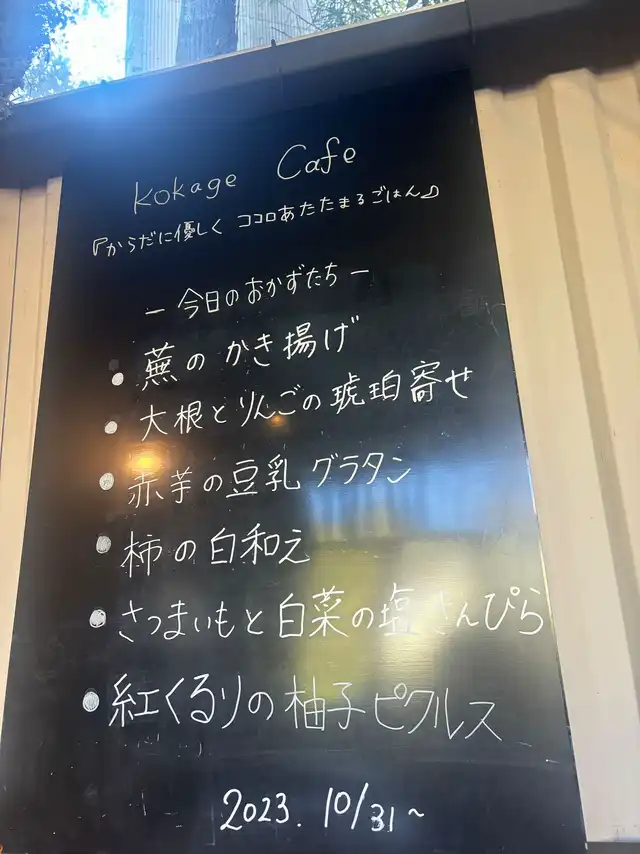 Kokage Cafe
『からだに優しく ココロあたたまるごはん♪
— 今日のおかずたち —
• 蕪のかき揚げ
• 大根とりんごの琥珀寄せ
• 赤芋の豆乳グラタン
• 柿の白和え
• さつまいもと白菜の塩きんぴら
• 紅くるりの柚子ピクルス
2023. 10/31~